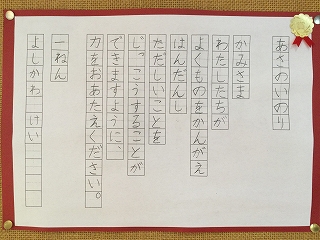 あさのいのり
かみさま
わたしたちが
よくものをかんがえ
はんだんし
ただしいことを
じっこうすることが
できますように、
力をおあたえください。
一ねん
よしかわ けい